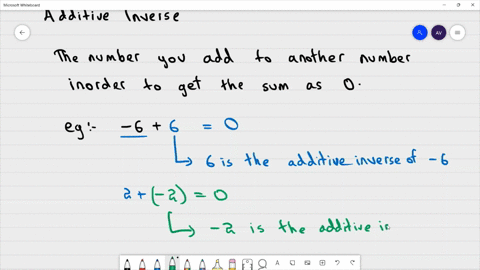 Microsoft Whiteboard
Additive Inverse
AV
The number you add to another number
inorder to get the sum as 0.
eg:- -6 + 6 = 0
6 is the additive inverse of -6
2 + (-2) = 0
-2 is the additive i